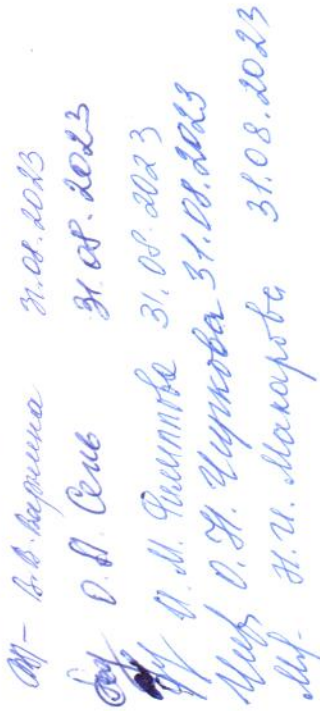 В.В. Ларина 31.08.2023
О.П. Сень 31.08.2023
И.М. Филиппова 31.08.2023
О.Н. Чуркова 31.08.2023
Н.И. Макарова 31.08.2023